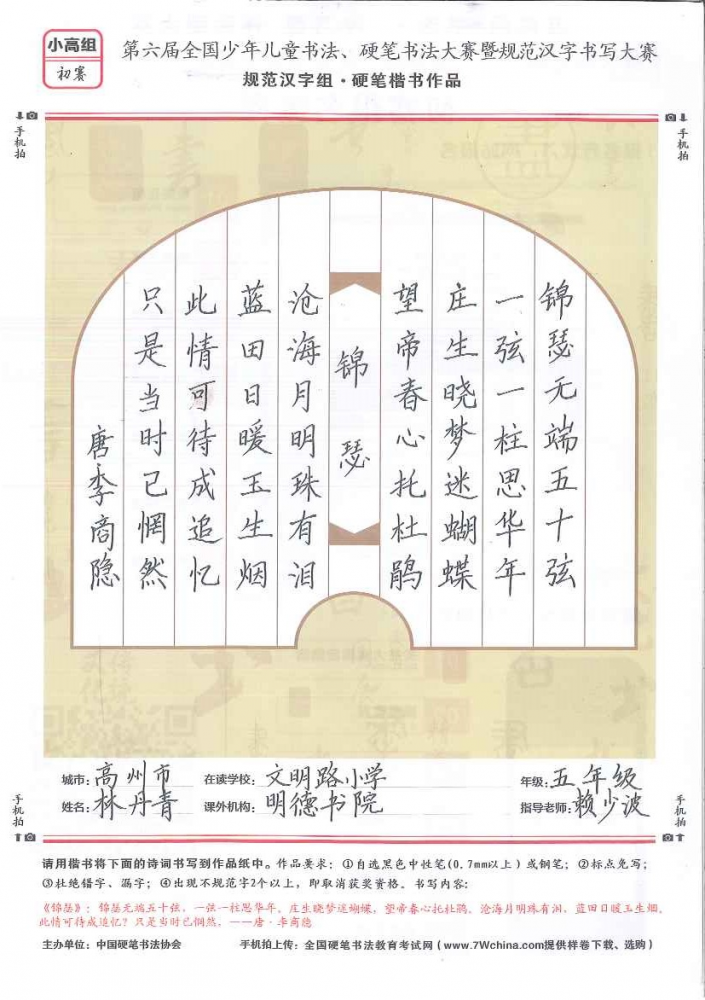 小高组
初赛
第六届全国少年儿童书法、硬笔书法大赛暨规范汉字书写大赛
规范汉字组·硬笔楷书作品
手机拍
手机拍
锦瑟无端五十弦
一弦一柱思华年
庄生晓梦迷蝴蝶
望帝春心托杜鹃
锦瑟
沧海月明珠有泪
蓝田日暖玉生烟
此情可待成追忆
只是当时已惘然
唐李商隐
城市：高州市 在读学校：文明路小学 年级：五年级
姓名：林丹青 课外机构：明德书院 指导老师：赖少波
手机拍
手机拍
请用楷书将下面的诗词书写到作品纸中。作品要求：①自选黑色中性笔(0.7mm以上）或钢笔；②标点免写；
③杜绝错字、漏字；④出现不规范字2个以上，即取消获奖资格。书写内容：
《锦瑟》：锦瑟无端五十弦，一弦一柱思华年。庄生晓梦迷蝴蝶，望帝春心托杜鹃。沧海月明珠有泪，蓝田日暖玉生烟。
此情可待成追忆？只是当时已惘然。——唐·李商隐
主办单位：中国硬笔书法协会 手机拍上传：全国硬笔书法教育考试网（www.7Wchina.com提供样卷下载、选购）